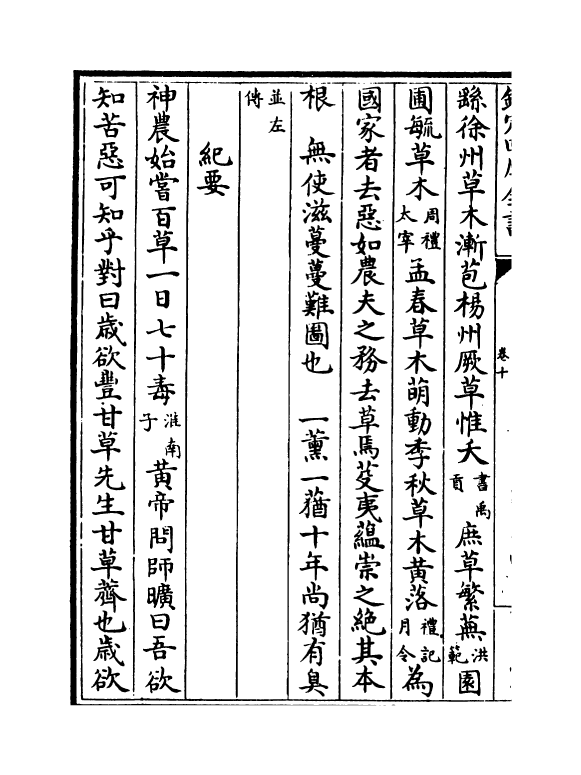 卷十
繇徐州草木漸苞楊州厥草惟夭書禹貢庶草繁蕪洪範園
圃毓草木周禮太宰孟春草木萌動季秋草木黃落禮記月令為
國家者去惡如農夫之務去草焉芟夷蘊崇之絶其本
根　無使滋蔓蔓難圖也　一薰一蕕十年尚猶有臭
並左傳
紀要
神農始嘗百草一日七十毒淮南子黃帝問師曠曰吾欲
知苦惡可知乎對曰歲欲豐甘草先生甘草薺也歲欲